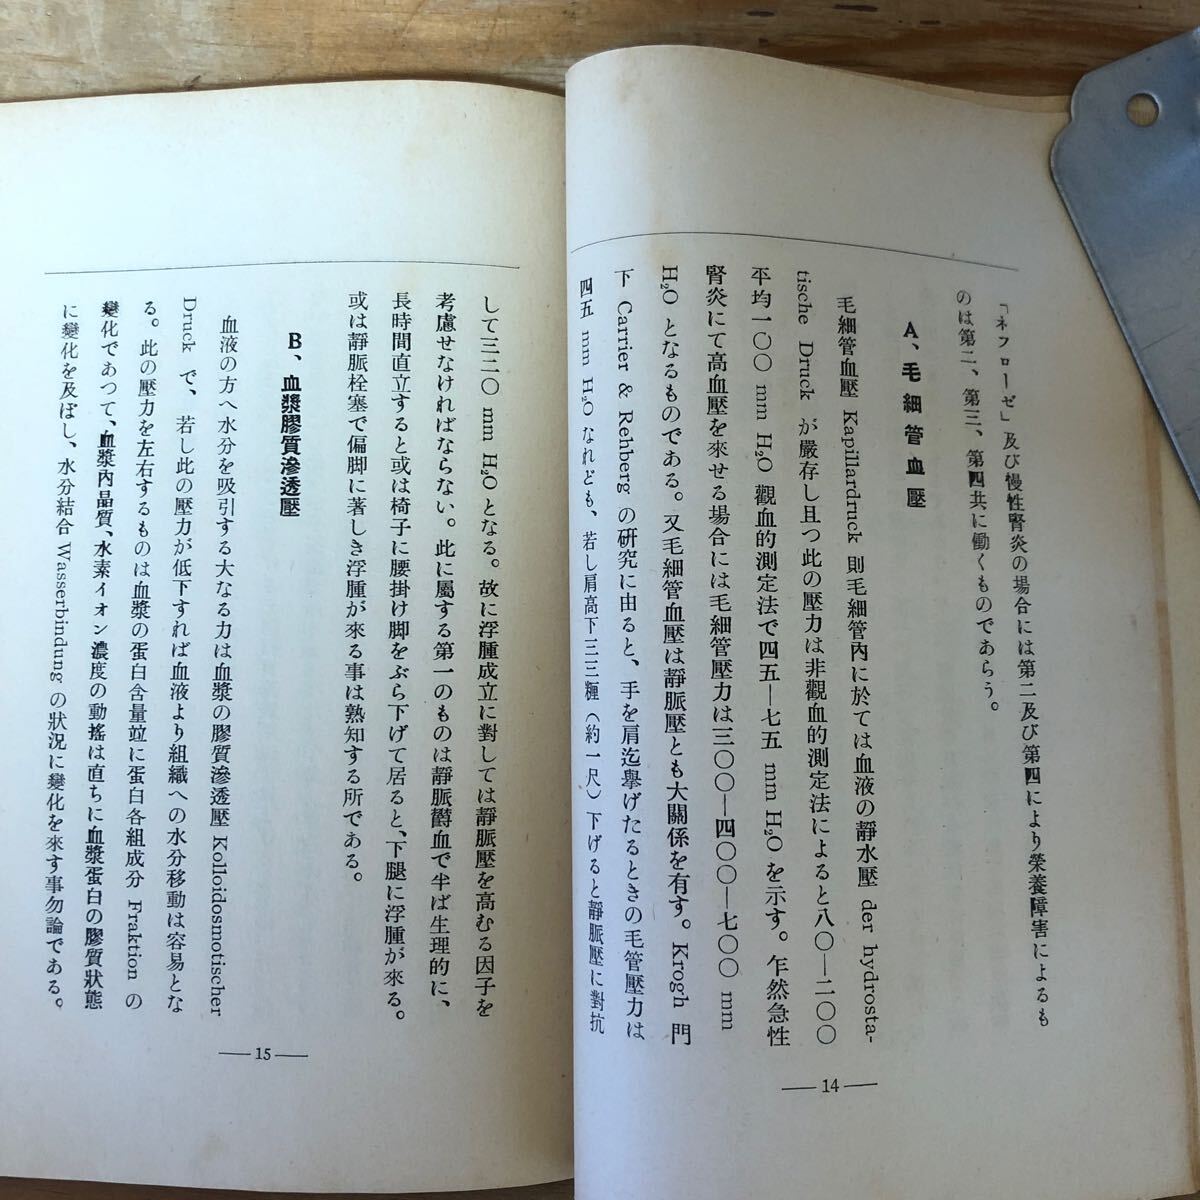 「ネフローゼ」及び慢性腎炎の場合には第二及び第四により榮養障害によるも
のは第二、第三、第四共に働くものであらう。
A、毛細管血壓
毛細管血壓 Kapillardruck 則毛細管內に於ては血液の靜水壓 der hydrosta-
tische Druck が嚴存し且つ此の壓力は非觀血的測定法によると八〇—二〇〇
平均一〇〇 mm H₂O 觀血的測定法で四五—七五 mm H₂O を示す。乍然急性
腎炎にて高血壓を來せる場合には毛細管壓力は三〇〇—四〇〇—七〇〇 mm
H₂O となるものである。又毛細管血壓は靜脈壓とも大關係を有す。Krogh 門
下 Carrier & Rehberg の硏究に由ると、手を肩迄擧げたるときの毛管壓力は
四五 mm H₂O なれども、若し肩高下三三糎（約一尺）下げると靜脈壓に對抗
— 14 —
して三二〇 mm H₂O となる。故に浮腫成立に對しては靜脈壓を高むる因子を
考慮せなければならない。此に屬する第一のものは靜脈欝血で半ば生理的に、
長時間直立すると或は椅子に腰掛け脚をぶら下げて居ると、下腿に浮腫が來る。
或は靜脈栓塞で偏脚に著しき浮腫が來る事は熟知する所である。
B、血漿膠質滲透壓
血液の方へ水分を吸引する大なる力は血漿の膠質滲透壓 Kolloidosmotischer
Druck で、若し此の壓力が低下すれば血液より組織への水分移動は容易とな
る。此の壓力を左右するものは血漿の蛋白含量竝に蛋白各組成分 Fraktion の
變化であつて、血漿內晶質、水素イオン濃度の動搖は直ちに血漿蛋白の膠質狀態
に變化を及ぼし、水分結合 Wasserbindung の狀況に變化を來す事勿論である。
— 15 —